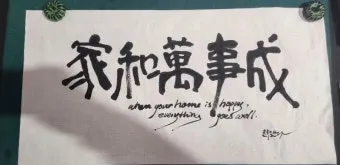 家和萬事成
when your home is happy,
everything goes well.